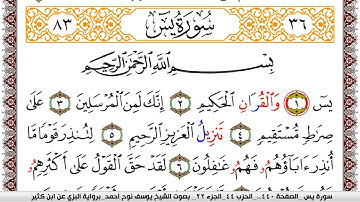 ٨٣ سُورَةُ يسٓ ٣٦
بِسْمِ ٱللَّهِ ٱلرَّحْمَٰنِ ٱلرَّحِيمِ
يسٓ ١ وَٱلْقُرَانِ ٱلْحَكِيمِ ٢ إِنَّكَ لَمِنَ ٱلْمُرْسَلِينَ ٣ عَلَىٰ
صِرَٰطٍ مُّسْتَقِيمٍ ٤ تَنزِيلُ ٱلْعَزِيزِ ٱلرَّحِيمِ ٥ لِتُنذِرَ قَوْمًا مَّا
أُنذِرَ ءَابَآؤُهُمُۥ فَهُمُۥ غَٰفِلُونَ ٦ لَقَدْ حَقَّ ٱلْقَوْلُ عَلَىٰٓ أَكْثَرِهِمُۥ
سورة يس_ الصفحة ٤٤٠_ الحزب ٤٤_ الجزء ٢٢_ بصوت الشيخ يوسف نوح أحمد_ برواية البزي عن ابن كثير